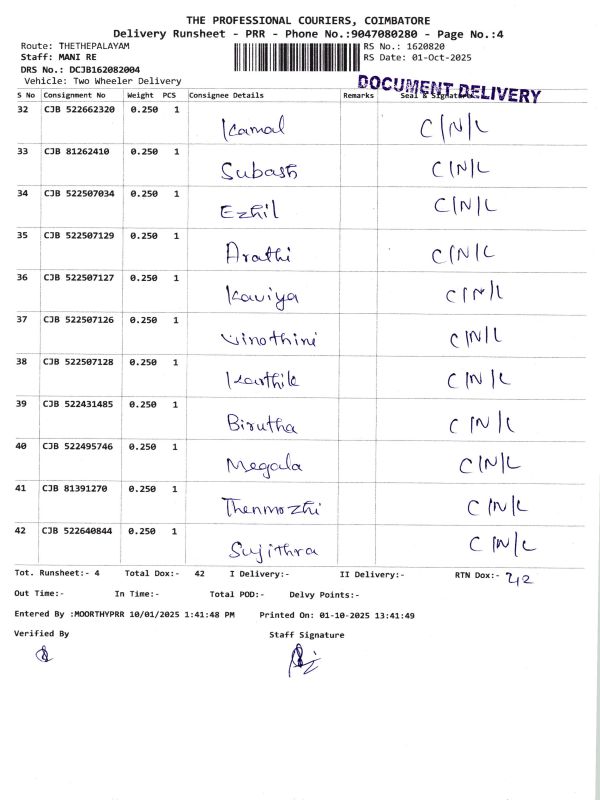 THE PROFESSIONAL COURIERS, COIMBATORE
Delivery Runsheet - PRR - Phone No.:9047080280 - Page No.:4
Route: THETHEPALAYAM
RS No.: 1620820
Staff: MANI RE
RS Date: 01-Oct-2025
DRS No.: DCJB162082004
Vehicle: Two Wheeler Delivery
DOCUMENT DELIVERY
S No Consignment No Weight PCS Consignee Details Remarks Seal & Signature
32 CJB 522662320 0.250 1 Kamal C/N/L
33 CJB 81262410 0.250 1 Subash C/N/L
34 CJB 522507034 0.250 1 Ezhil C/N/L
35 CJB 522507129 0.250 1 Arathi C/N/L
36 CJB 522507127 0.250 1 Kaviya C/N/L
37 CJB 522507126 0.250 1 Vinothini C/N/L
38 CJB 522507128 0.250 1 Karthik C/N/L
39 CJB 522431485 0.250 1 Birutha C/N/L
40 CJB 522495746 0.250 1 Megala C/N/L
41 CJB 81391270 0.250 1 Thenmozhi C/N/L
42 CJB 522640844 0.250 1 Sujithra C/N/L
Tot. Runsheet:- 4 Total Dox:- 42 I Delivery:- II Delivery:- RTN Dox:- 42
Out Time:- In Time:- Total POD:- Delvy Points:-
Entered By :MOORTHYPRR 10/01/2025 1:41:48 PM Printed On: 01-10-2025 13:41:49
Verified By Staff Signature